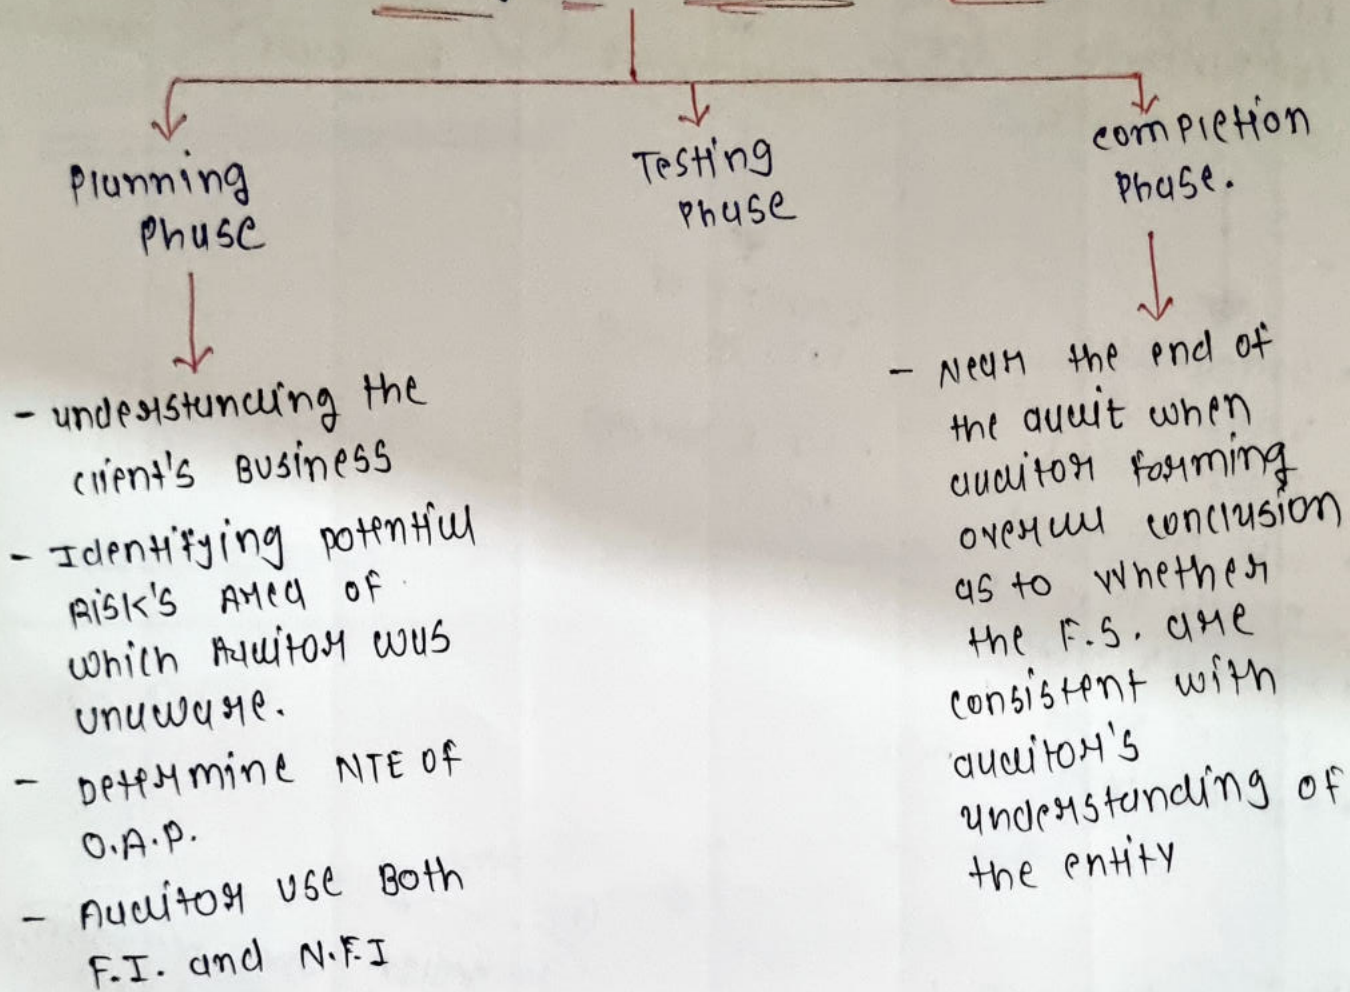 Planning
Phase
Testing
Phase
completion
Phase.
- understanding the
client's Business
- Identifying potential
Risk's Area of
which Auditor was
unaware.
- Determine NTE of
O.A.P.
- Auditor use Both
F.I. and N.F.I
- Near the end of
the audit when
auditor forming
overall conclusion
as to whether
the F.S. are
consistent with
auditor's
understanding of
the entity